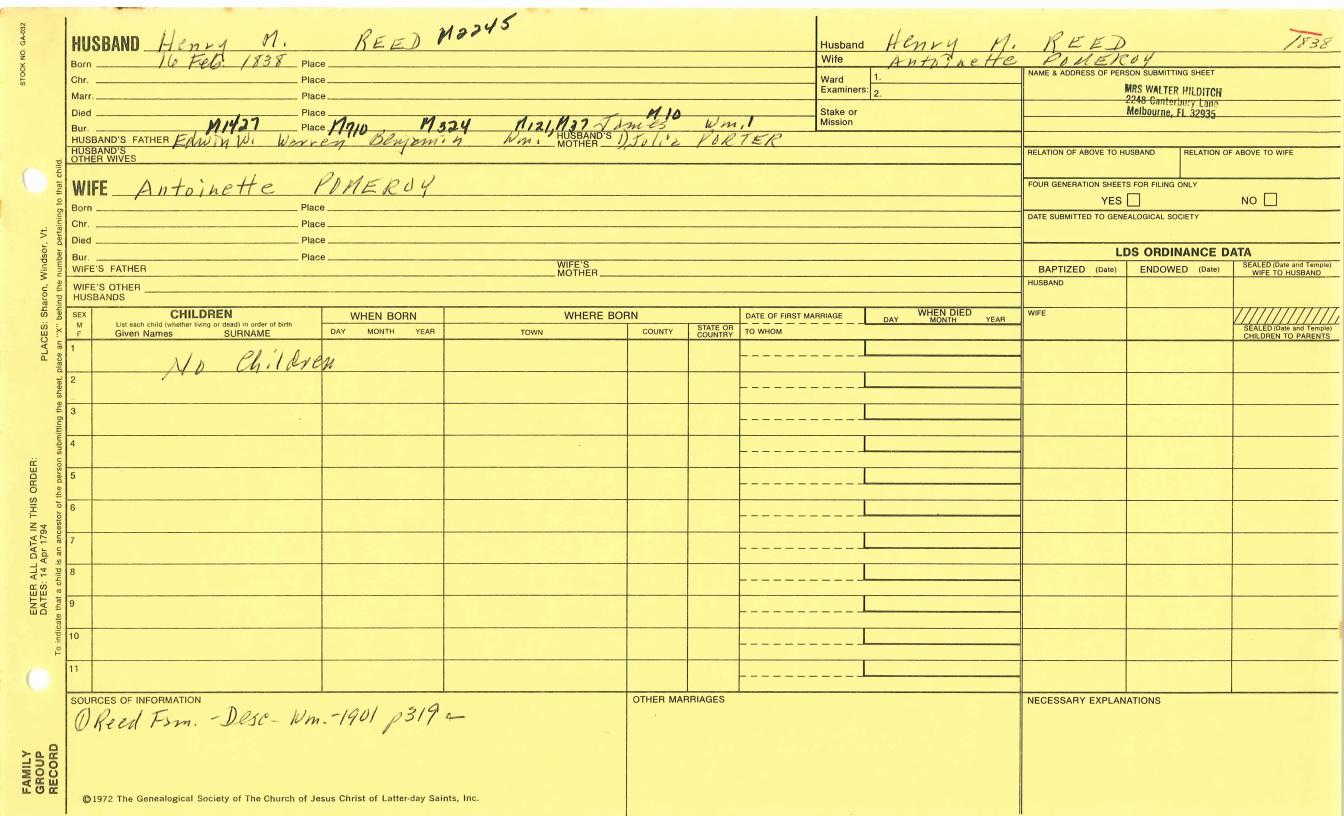 STOCK NO. GA-032
HUSBAND Henry M. REED M2245
Born 16 Feb 1838 Place
Chr. Place
Marr. Place
Died Place
Bur. Place
M1427 M710 M324 M121, M37 M10
HUSBAND'S FATHER Edwin W. Warren Benjamin Wm. James Wm.1
HUSBAND'S MOTHER Julia PORTER
HUSBAND'S OTHER WIVES
Husband Henry M. REED 1838
Wife Antoinette POMEROY
Ward Examiners: 1.
2.
Stake or Mission
NAME & ADDRESS OF PERSON SUBMITTING SHEET
MRS WALTER HILDITCH
2248 Canterbury Lane
Melbourne, FL 32935
RELATION OF ABOVE TO HUSBAND RELATION OF ABOVE TO WIFE
FOUR GENERATION SHEETS FOR FILING ONLY
YES NO
DATE SUBMITTED TO GENEALOGICAL SOCIETY
WIFE Antoinette POMEROY
Born Place
Chr. Place
Died Place
Bur. Place
WIFE'S FATHER WIFE'S MOTHER
WIFE'S OTHER HUSBANDS
LDS ORDINANCE DATA
BAPTIZED (Date) ENDOWED (Date) SEALED (Date and Temple) WIFE TO HUSBAND
HUSBAND
WIFE
SEALED (Date and Temple) CHILDREN TO PARENTS
SEX M F
CHILDREN
List each child (whether living or dead) in order of birth
Given Names SURNAME
WHEN BORN
DAY MONTH YEAR
WHERE BORN
TOWN COUNTY STATE OR COUNTRY
DATE OF FIRST MARRIAGE
TO WHOM
WHEN DIED
DAY MONTH YEAR
1 No Children
2
3
4
5
6
7
8
9
10
11
SOURCES OF INFORMATION
① Reed Fam. - Desc - Wm. - 1901 p319
OTHER MARRIAGES
NECESSARY EXPLANATIONS
©1972 The Genealogical Society of The Church of Jesus Christ of Latter-day Saints, Inc.
FAMILY GROUP RECORD
ENTER ALL DATA IN THIS ORDER:
DATES: 14 Apr 1794 PLACES: Sharon, Windsor, Vt.
To indicate that a child is an ancestor of the person submitting the sheet, place an "X" behind the number pertaining to that child.